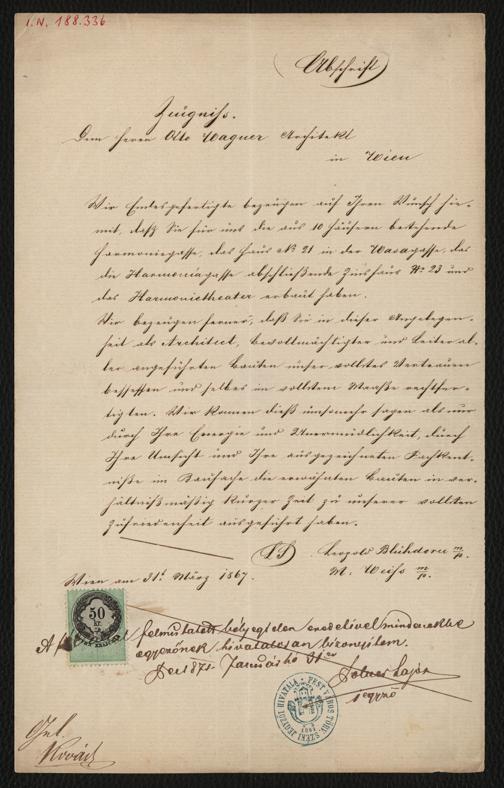 I.N. 188.336
Abschrift
Zeugniß.
Dem Herrn Otto Wagner Architekt
in Wien
Wir Endesgefertigte bezeugen auf Ihren Wunsch hie-
mit, daß Sie für uns die aus 10 Häusern bestehende
Harmoniegasse, das Haus No 21 in der Wasagasse, das
die Harmoniegasse abschließende Zinshaus No 23 und
das Harmonietheater erbaut haben.
Wir bezeugen ferner, daß Sie in dieser Angelegen-
heit als Architect, bevollmächtigter und Leiter al-
ler angeführten Bauten unser vollstes Vertrauen
besessen und selbes in vollstem Maaße rechtfer-
tigten. Wir können dieß umsomehr sagen als nur
durch Ihre Energie und Unermüdlichkeit, durch
Ihre Umsicht und Ihre ausgezeichneten Fachkent-
niße im Baufache die erwähnten Bauten in ver-
hältnißmäßig kurzer Zeit zu unserer vollsten
Zufriedenheit ausgeführt haben.
LS Leopold Blühdorn m/p.
Wien am 31t März 1867. M. Weiss m/p.
50
KR
A felmutatott bélyegtelen eredetivel mindenekbe
egyezőnek hivatalosan bizonyítom.
Pest 1871 Januárhó
Lajos
jegyző
PEST VÁROS TÖRV. SZÉKI JEGYZŐI HIVATALA
Kovách